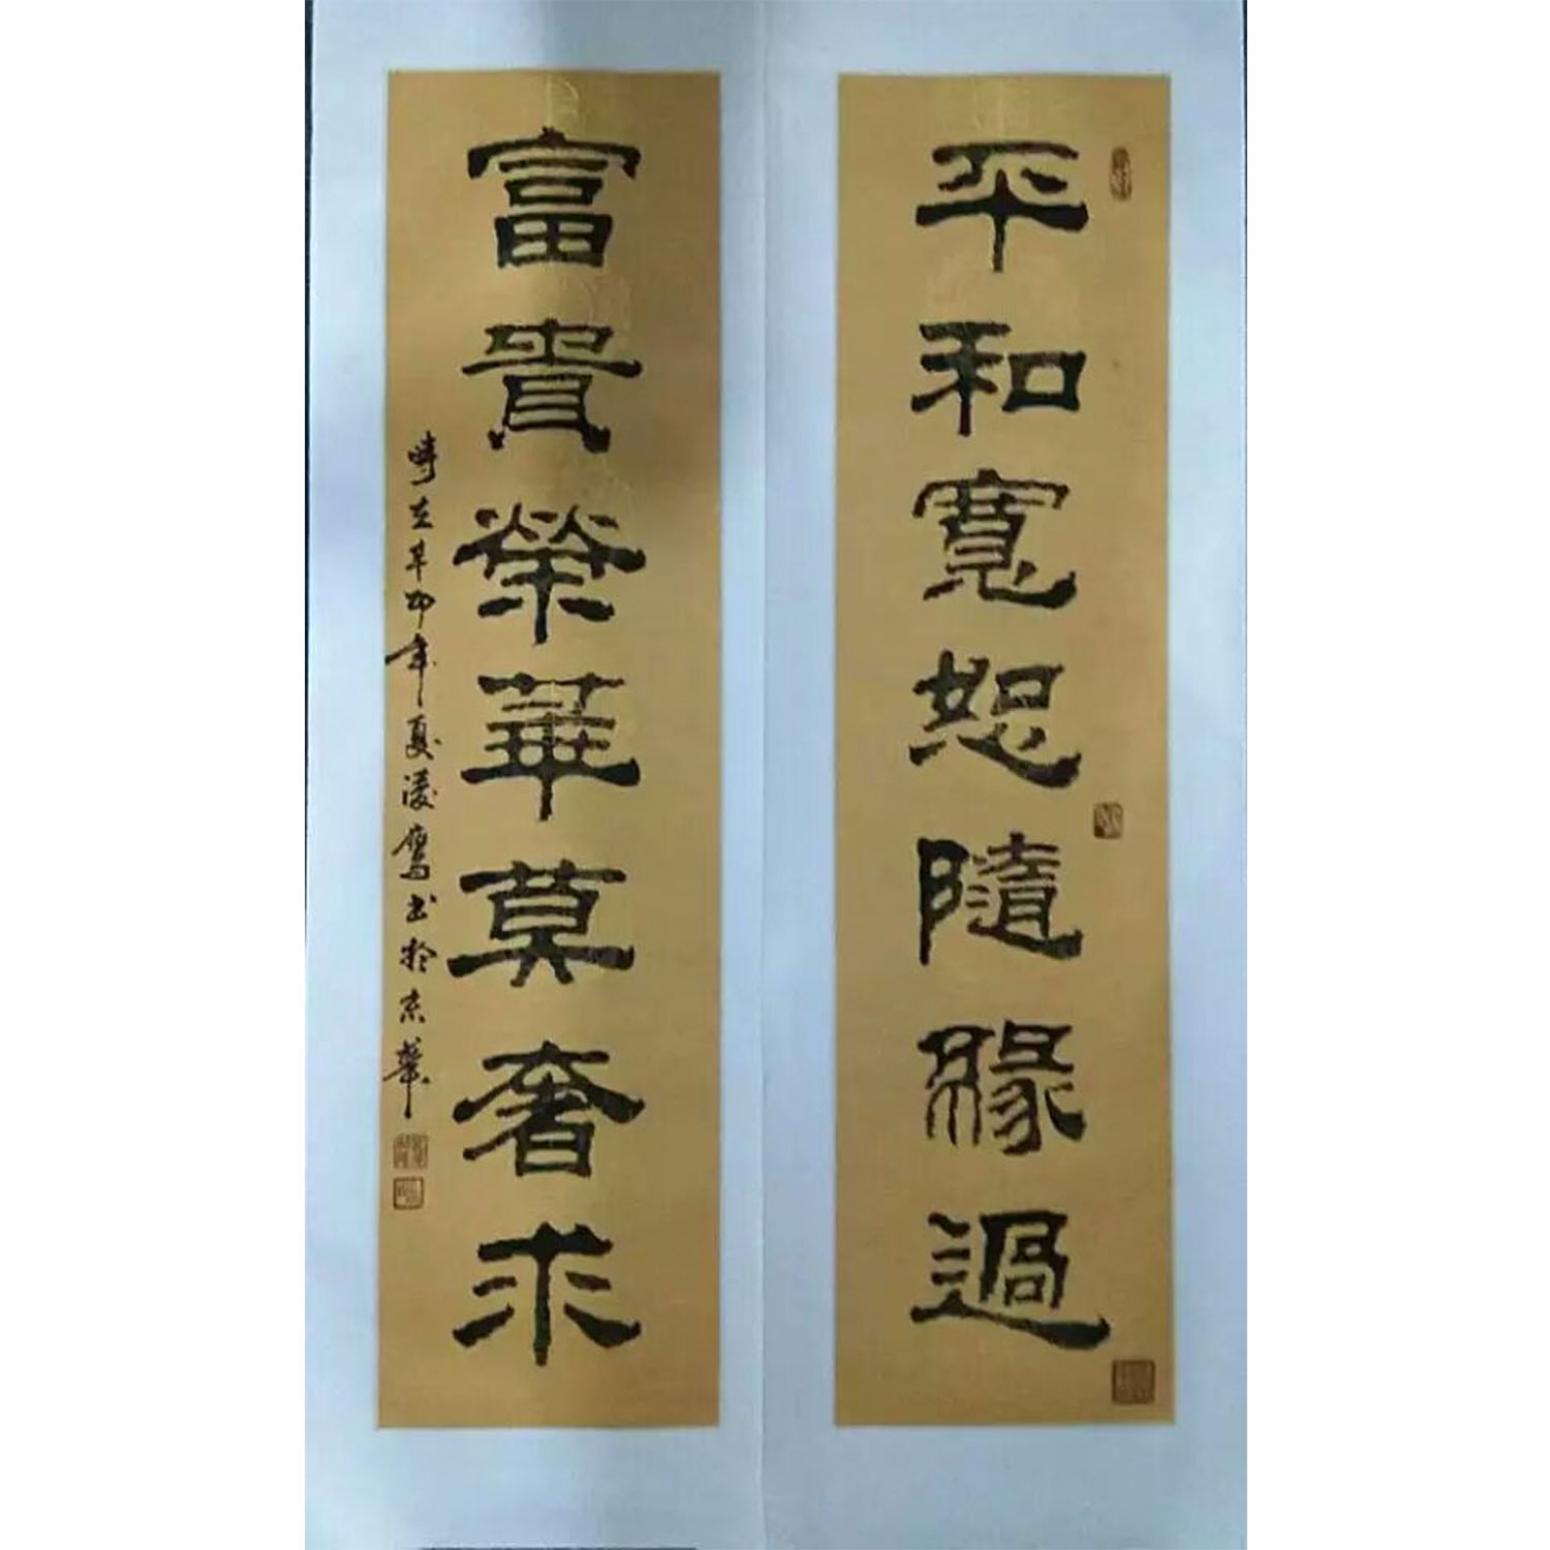 平和寬恕隨緣過
富貴榮華莫奢求
時在辛卯年夏凌鷹书於京華